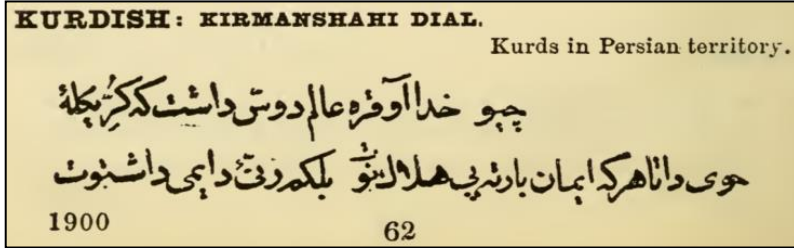 KURDISH: KIRMANSHAHI DIAL.
Kurds in Persian territory.
چیو خدا آوقره عالم دوس داشت که کُرِّ یکلهٔ
خوی دا تا هرکه ایمان بارته پی هلال بلکم دایمی داشتوت
1900
62